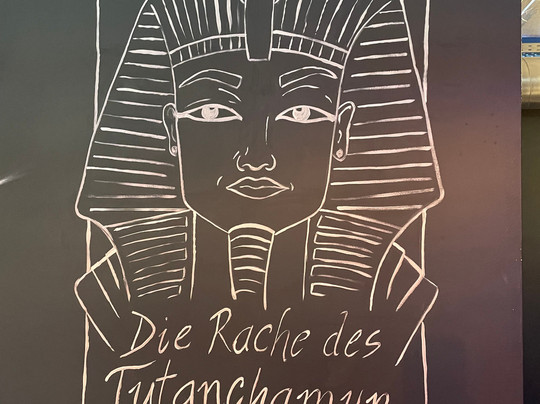 Die Rache des
Tutanchamun